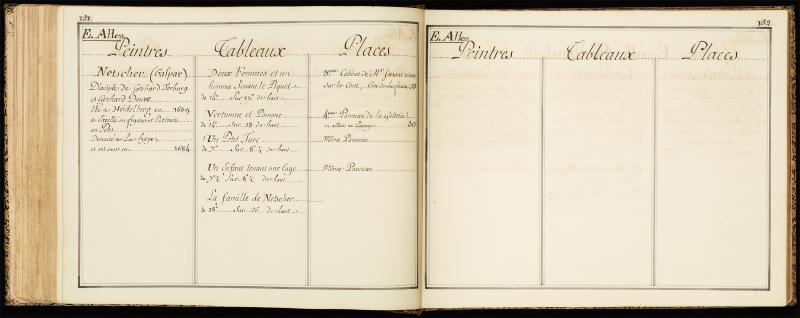 151.
E. Allem.
Peintres
Tableaux
Places
Netscher. (Gaspar)
Disciple de Gerhard Terburg
et Gerhard Douve
Né à Heidelberg en 1639
a Excellé en figures et Portraits
en Petit
Demeura La Haye
et est mort en 1684
Deux Femmes et un
homme Jouant le Piquet
de 14 Sur 17 de haut
Vertumne et Pomone
de 14 Sur 18 de haut
Un Petit Turc
de 7 Sur 8 ½ de haut
Un Enfant tenant une Cage
de 7 ½ Sur 8 ½ de haut
La famille de Netscher
de 18 Sur 21 de haut
3eme Cabinet de Mr
Sur la Cour
4eme Panneau de la Gallerie
30
Même Panneau
Même Panneau
152.
E. Allem.
Peintres
Tableaux
Places